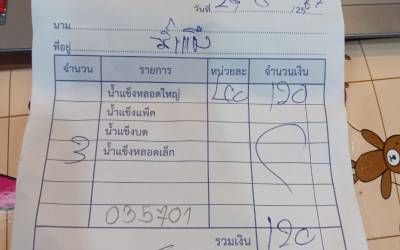 วันที่ /25 67
นาม
ที่อยู่
จำนวน รายการ หน่วยละ จำนวนเงิน
น้ำแข็งหลอดใหญ่ 120
น้ำแข็งแพ็ค
น้ำแข็งบด
3 น้ำแข็งหลอดเล็ก
035701
รวมเงิน 120